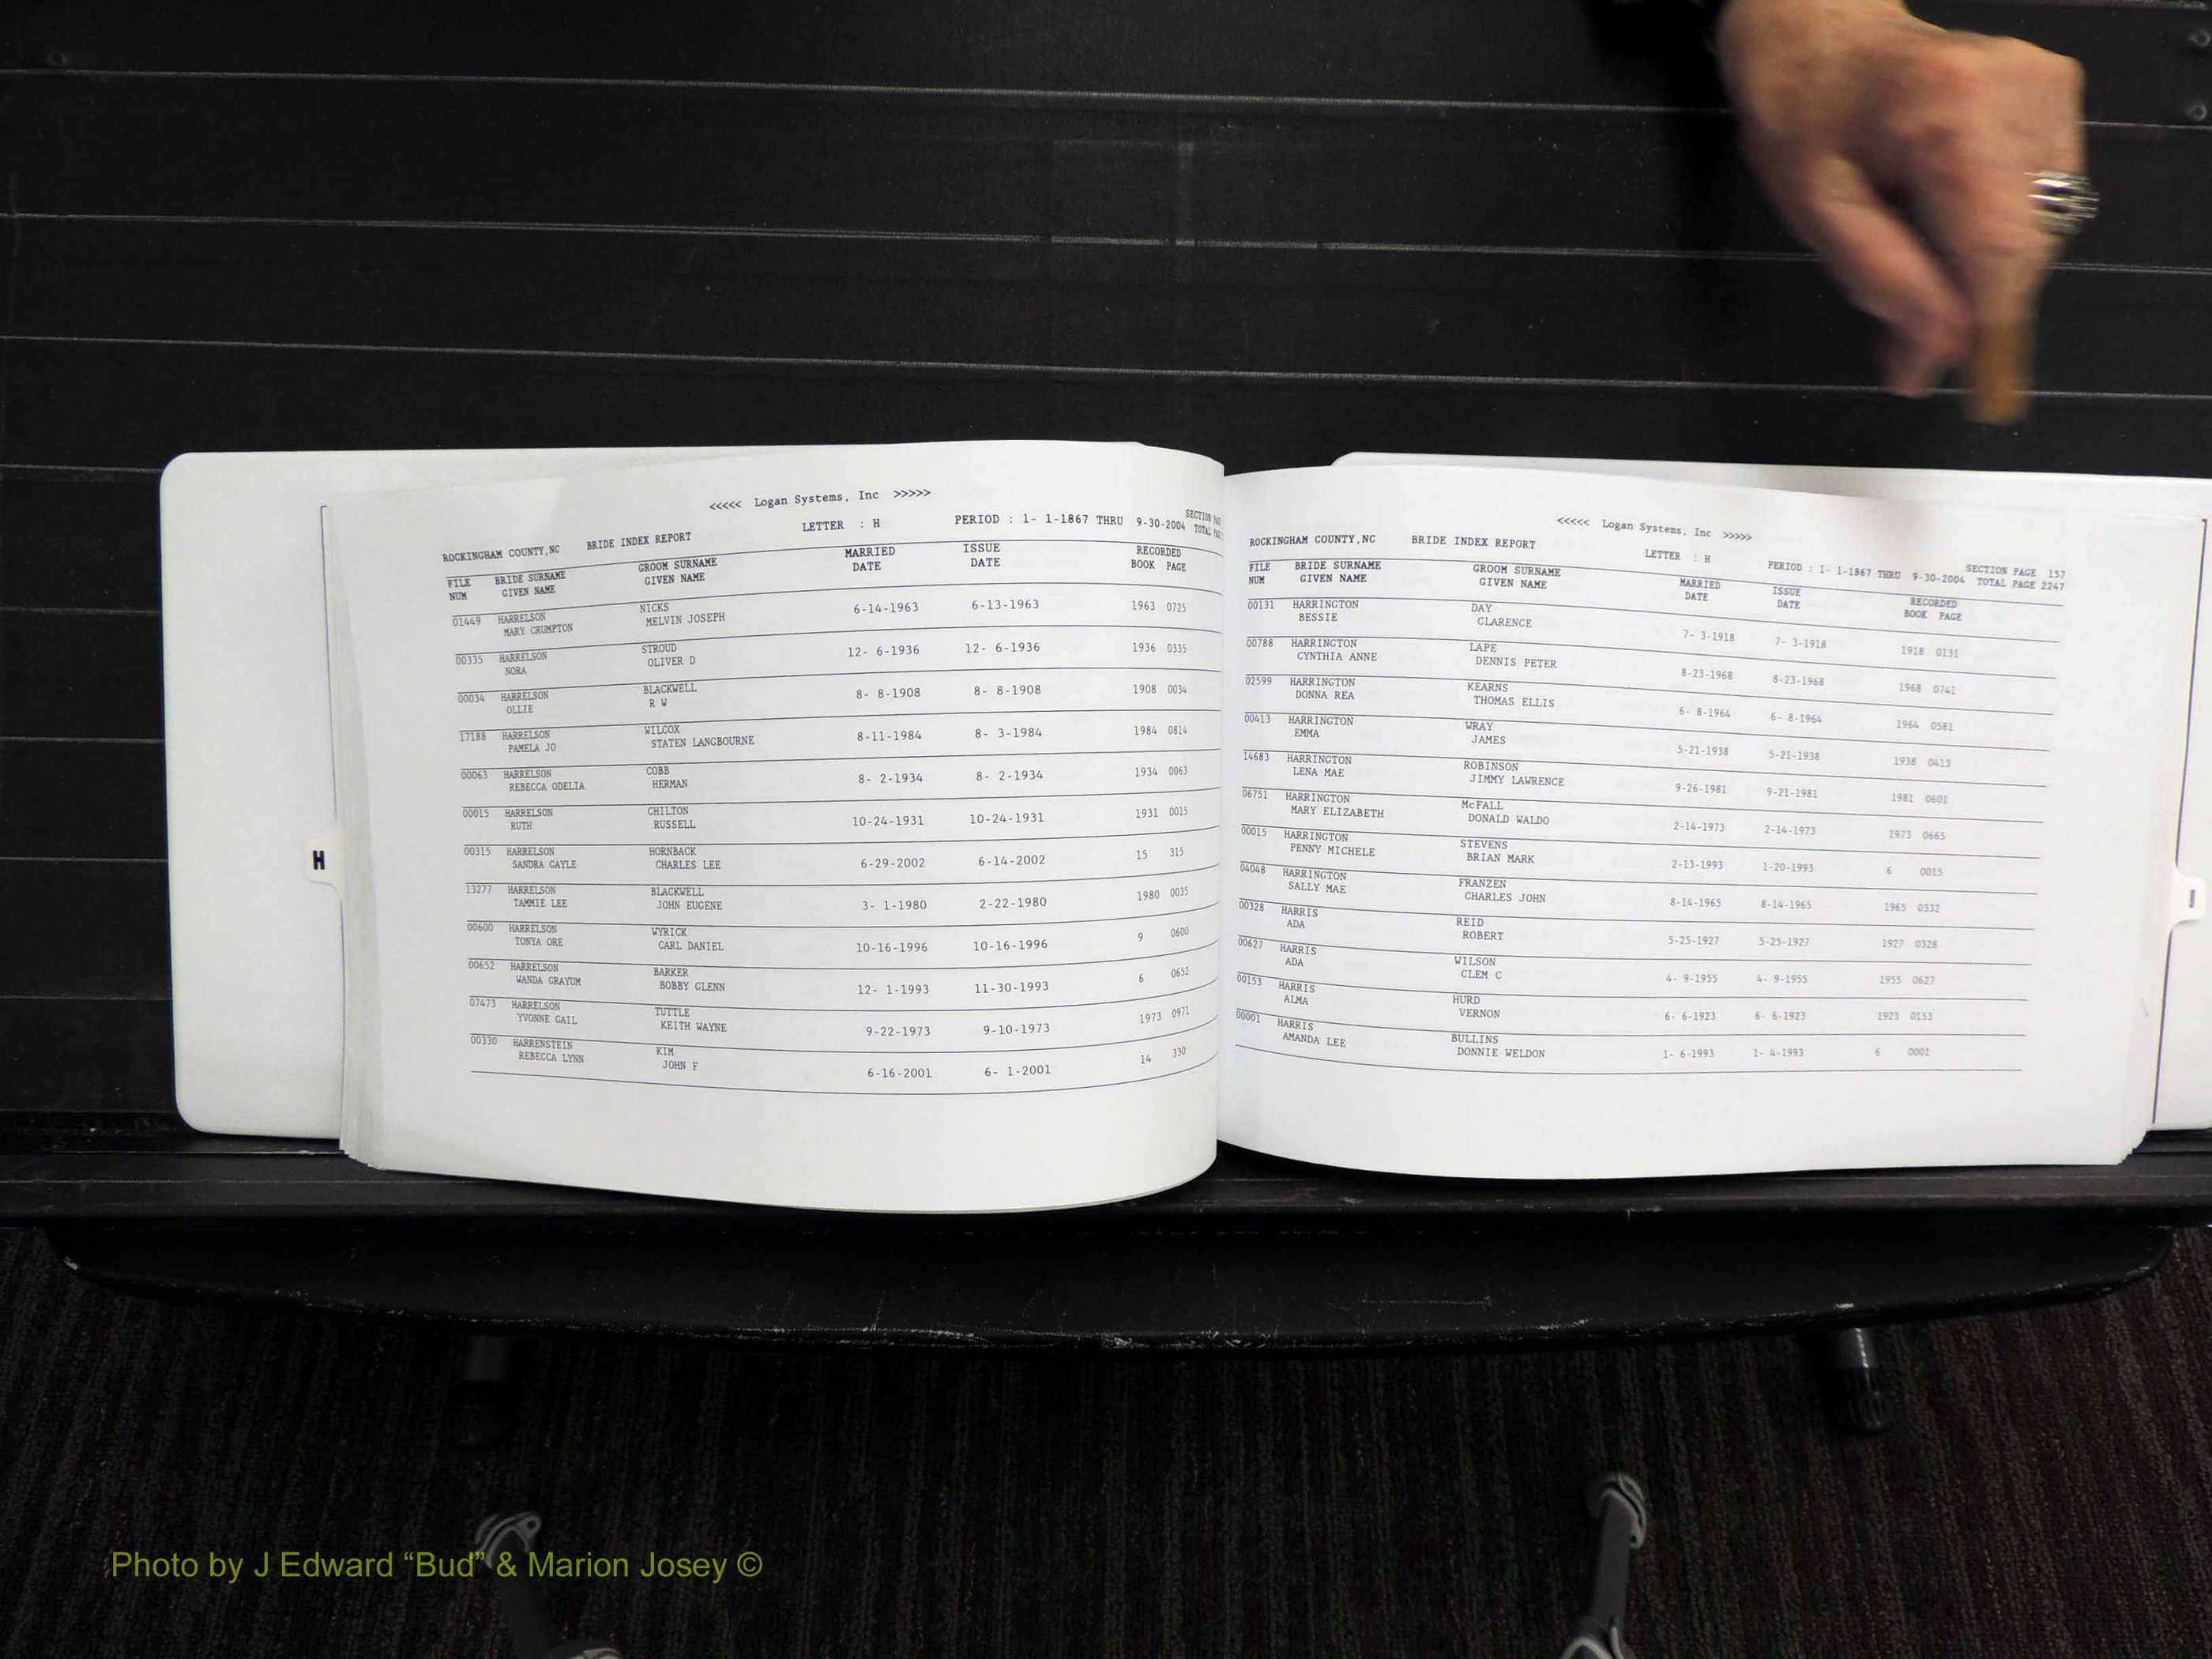 <<<<< Logan Systems, Inc >>>>>
ROCKINGHAM COUNTY,NC BRIDE INDEX REPORT LETTER : H PERIOD : 1- 1-1867 THRU 9-30-2004 SECTION
TOTAL
FILE BRIDE SURNAME GROOM SURNAME MARRIED ISSUE RECORDED
NUM GIVEN NAME GIVEN NAME DATE DATE BOOK PAGE
01449 HARRELSON NICKS 6-14-1963 6-13-1963 1963 0725
MARY CRUMPTON MELVIN JOSEPH
00335 HARRELSON STROUD 12- 6-1936 12- 6-1936 1936 0335
NORA OLIVER D
00034 HARRELSON BLACKWELL 8- 8-1908 8- 8-1908 1908 0034
OLLIE R W
17188 HARRELSON WILCOX 8-11-1984 8- 3-1984 1984 0814
PAMELA JO STATEN LANGBOURNE
00063 HARRELSON COBB 8- 2-1934 8- 2-1934 1934 0063
REBECCA ODELIA HERMAN
00015 HARRELSON CHILTON 10-24-1931 10-24-1931 1931 0015
RUTH RUSSELL
00315 HARRELSON HORNBACK 6-29-2002 6-14-2002 15 315
SANDRA GAYLE CHARLES LEE
13277 HARRELSON BLACKWELL 3- 1-1980 2-22-1980 1980 0035
TAMMIE LEE JOHN EUGENE
00600 HARRELSON WYRICK 10-16-1996 10-16-1996 9 0600
TONYA ORE CARL DANIEL
00652 HARRELSON BARKER 12- 1-1993 11-30-1993 6 0652
WANDA GRAYUM BOBBY GLENN
07473 HARRELSON TUTTLE 9-22-1973 9-10-1973 1973 0971
YVONNE GAIL KEITH WAYNE
00330 HARRENSTEIN KIM 6-16-2001 6- 1-2001 14 330
REBECCA LYNN JOHN F
H
<<<<< Logan Systems, Inc >>>>>
ROCKINGHAM COUNTY,NC BRIDE INDEX REPORT LETTER : H PERIOD : 1- 1-1867 THRU 9-30-2004 SECTION PAGE 157
TOTAL PAGE 2247
FILE BRIDE SURNAME GROOM SURNAME MARRIED ISSUE RECORDED
NUM GIVEN NAME GIVEN NAME DATE DATE BOOK PAGE
00131 HARRINGTON DAY 7- 3-1918 7- 3-1918 1918 0131
BESSIE CLARENCE
00788 HARRINGTON LAPE 8-23-1968 8-23-1968 1968 0741
CYNTHIA ANNE DENNIS PETER
02599 HARRINGTON KEARNS 6- 8-1964 6- 8-1964 1964 0581
DONNA REA THOMAS ELLIS
00413 HARRINGTON WRAY 5-21-1938 5-21-1938 1938 0413
EMMA JAMES
14683 HARRINGTON ROBINSON 9-26-1981 9-21-1981 1981 0601
LENA MAE JIMMY LAWRENCE
06751 HARRINGTON McFALL 2-14-1973 2-14-1973 1973 0665
MARY ELIZABETH DONALD WALDO
00015 HARRINGTON STEVENS 2-13-1993 1-20-1993 6 0015
PENNY MICHELE BRIAN MARK
04048 HARRINGTON FRANZEN 8-14-1965 8-14-1965 1965 0332
SALLY MAE CHARLES JOHN
00328 HARRIS REID 5-25-1927 5-25-1927 1927 0328
ADA ROBERT
00627 HARRIS WILSON 4- 9-1955 4- 9-1955 1955 0627
ADA CLEM C
00153 HARRIS HURD 6- 6-1923 6- 6-1923 1923 0153
ALMA VERNON
00001 HARRIS BULLINS 1- 6-1993 1- 4-1993 6 0001
AMANDA LEE DONNIE WELDON
I
Photo by J Edward “Bud” & Marion Josey ©